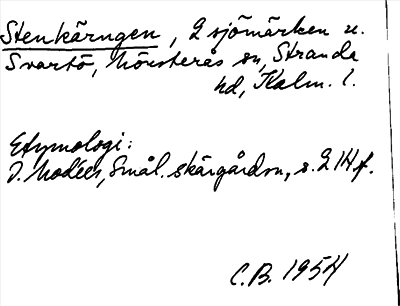 Stenkärngen, 2 sjömärken u.
Svartö, Mönsterås sn, Stranda
hd, Kalm. l.
Etymologi:
J. Modéer, Smål. skärgårdsn, s. 214 f.
C.B. 1954